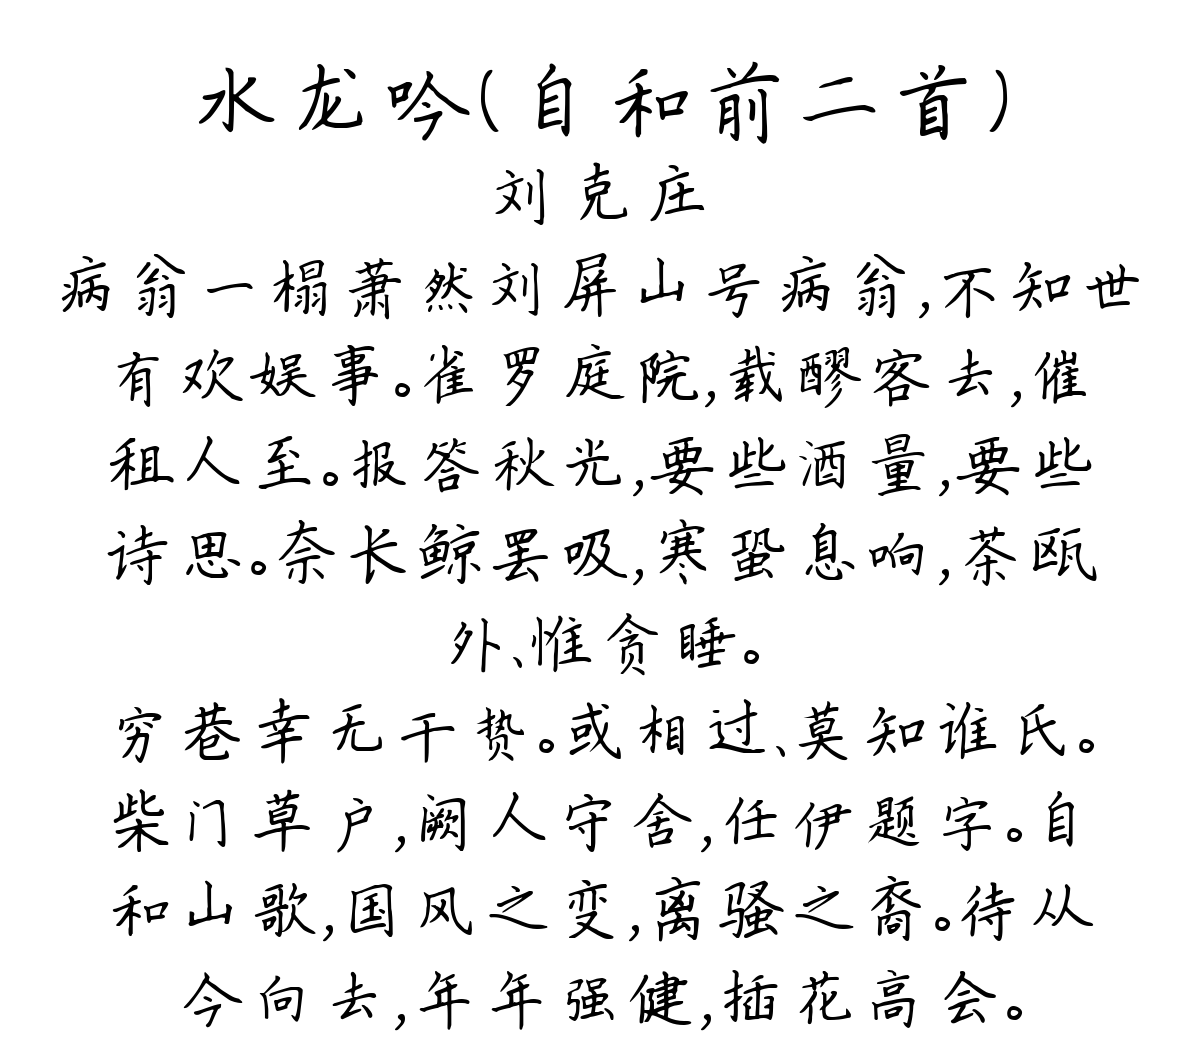 水龙吟(自和前二首)
刘克庄
病翁一榻萧然刘屏山号病翁,不知世
有欢娱事。雀罗庭院,载醪客去,催
租人至。报答秋光,要些酒量,要些
诗思。奈长鲸罢吸,寒蛩息响,茶瓯
外、惟贪睡。
穷巷幸无干贽。或相过、莫知谁氏。
柴门草户,阙人守舍,任伊题字。自
和山歌,国风之变,离骚之裔。待从
今向去,年年强健,插花高会。